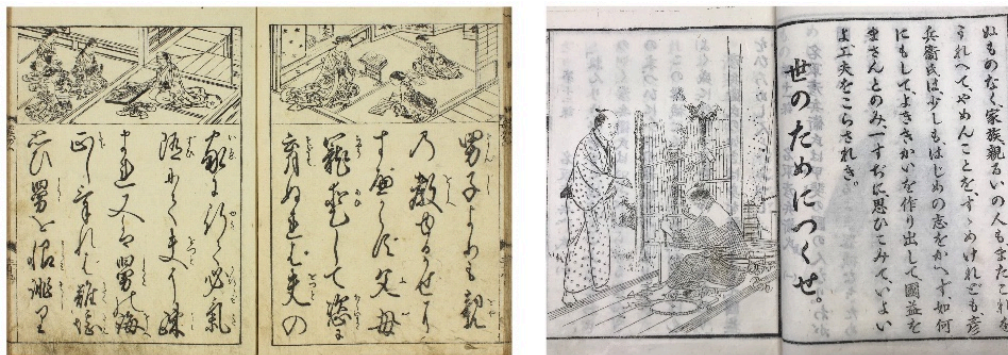 男子よりも親
の教ゆるがせに
すべからず父母
寵愛して恣に
育ぬれば夫の
家に行て必氣
随にて夫に疎
まれ又は舅の誨
正ければ難堪
思ひ舅を恨誹り
ぬものなく家族親るいの人もまた
うれへて、やめんことを、すゝめけれども、彦
兵衞氏は、少しもはじめの志をかへず、如何
にもして、よききかいを作り出して國益を
まさんとのみ、一すぢに思ひてみて、いよい
よ工夫をこらされき。
世のためにつくせ。